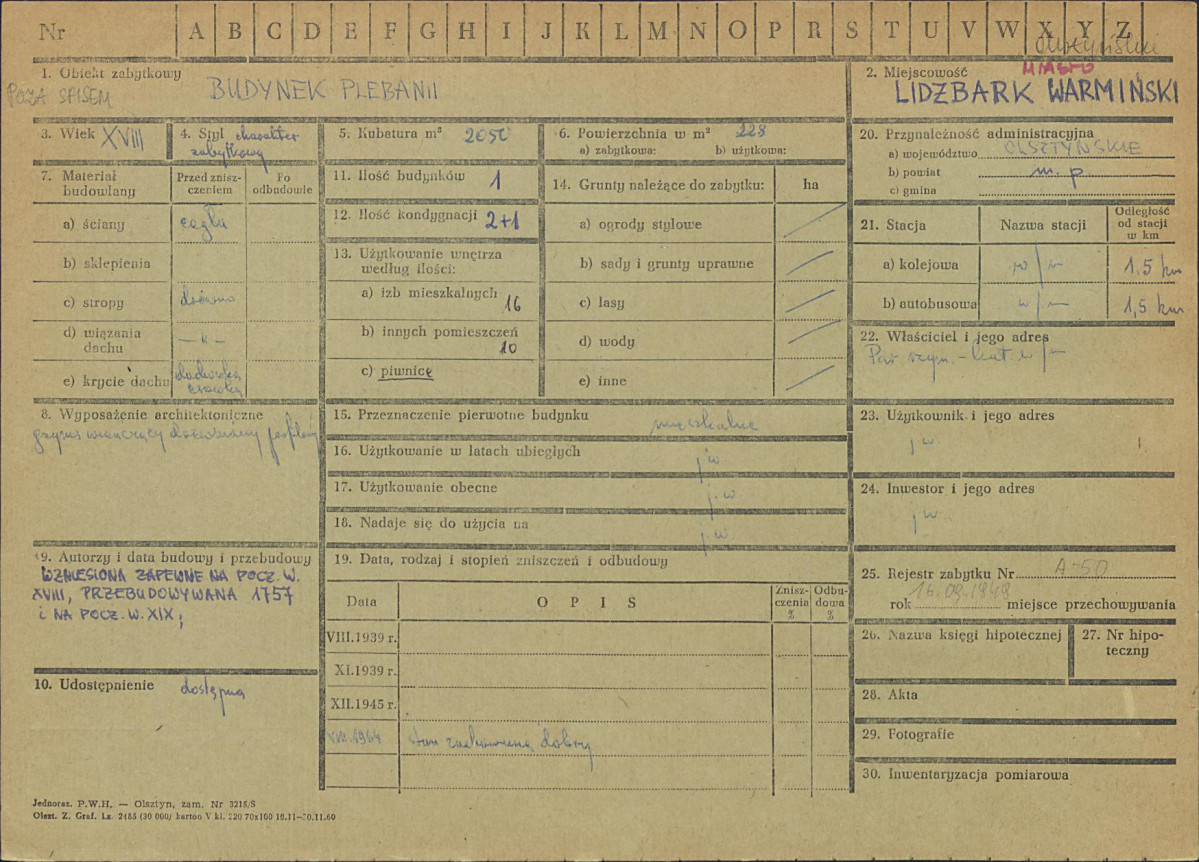 Nr A B C D E F G H I J K L M N O P R S T U V W X Y Z
1. Obiekt zabytkowy
POZA SPISEM
BUDYNEK PLEBANII
2. Miejscowość
MIASTO
LIDZBARK WARMIŃSKI
3. Wiek XVIII
4. Styl charakter
zabytkowy
5. Kubatura m³ 2050
6. Powierzchnia w m² 228
a) zabytkowa: b) użytkowa:
7. Materiał
budowlany
Przed znisz-
czeniem
Po
odbudowie
a) ściany cegła
b) sklepienia
c) stropy drewno
d) wiązania
dachu — „ —
e) krycie dachu dachówka
8. Wyposażenie architektoniczne
gzyms wieńczący
9. Autorzy i data budowy i przebudowy
WZNIESIONA ZAPEWNE NA POCZ. W.
XVIII, PRZEBUDOWYWANA 1757
i NA POCZ. W. XIX;
10. Udostępnienie dostępna
11. Ilość budynków 1
12. Ilość kondygnacji 2+1
13. Użytkowanie wnętrza
według ilości:
a) izb mieszkalnych
16
b) innych pomieszczeń
10
c) piwnice
14. Grunty należące do zabytku: ha
a) ogrody stylowe
b) sady i grunty uprawne
c) lasy
d) wody
e) inne
15. Przeznaczenie pierwotne budynku
mieszkalne
16. Użytkowanie w latach ubiegłych
j w
17. Użytkowanie obecne
j. w
18. Nadaje się do użycia na
j w
19. Data, rodzaj i stopień zniszczeń i odbudowy
Data O P I S
Znisz-
czenia
%
Odbu-
dowa
%
VIII.1939 r.
XI.1939 r.
XII.1945 r.
VIII.1964 stan zachowania dobry
20. Przynależność administracyjna
a) województwo OLSZTYŃSKIE
b) powiat m. p.
c) gmina
21. Stacja Nazwa stacji
Odległość
od stacji
w km
a) kolejowa w/m 1,5 km
b) autobusowa w/m 1,5 km
22. Właściciel i jego adres
Par rzym. - kat. w/m
23. Użytkownik i jego adres
j w
24. Inwestor i jego adres
j w.
25. Rejestr zabytku Nr A-50
rok 16.09.1949 miejsce przechowywania
26. Nazwa księgi hipotecznej
27. Nr hipo-
teczny
28. Akta
29. Fotografie
30. Inwentaryzacja pomiarowa
Jednoraz. P.W.H. — Olsztyn, zam. Nr 3215/S
Olszt. Z. Graf. Lz. 2485 (30 000) karton V kl. 220 70x100 10.11—30.11.60